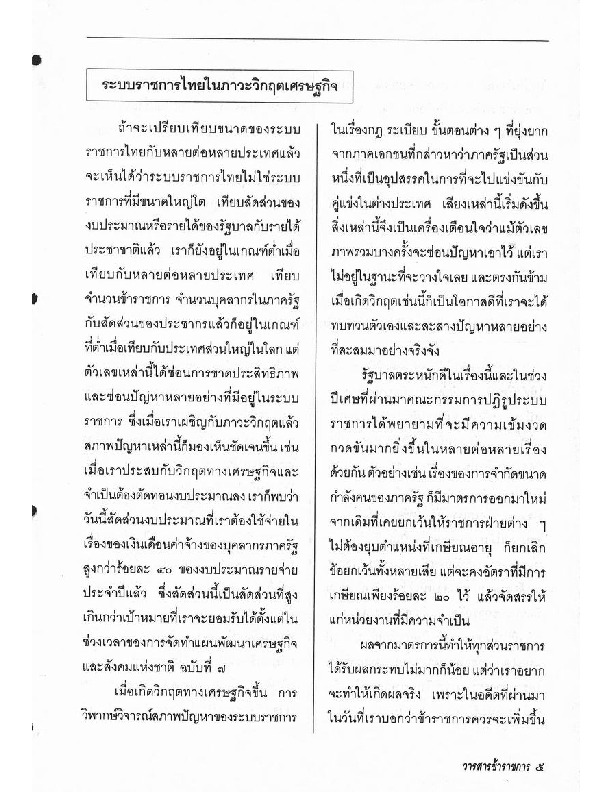 ระบบราชการไทยในภาวะวิกฤตเศรษฐกิจ
ถ้าจะเปรียบเทียบขนาดของระบบ
ราชการไทยกับหลายต่อหลายประเทศแล้ว
จะเห็นได้ว่าระบบราชการไทยไม่ใช่ระบบ
ราชการที่มีขนาดใหญ่โต เทียบสัดส่วนของ
งบประมาณหรือรายได้ของรัฐบาลกับรายได้
ประชาชาติแล้ว เราก็ยังอยู่ในเกณฑ์ต่ำเมื่อ
เทียบกับหลายต่อหลายประเทศ เทียบ
จำนวนข้าราชการ จำนวนบุคลากรในภาครัฐ
กับสัดส่วนของประชากรแล้วก็อยู่ในเกณฑ์
ที่ต่ำเมื่อเทียบกับประเทศส่วนใหญ่ในโลก แต่
ตัวเลขเหล่านี้ได้ซ่อนการขาดประสิทธิภาพ
และซ่อนปัญหาหลายอย่างที่มีอยู่ในระบบ
ราชการ ซึ่งเมื่อเราเผชิญกับภาวะวิกฤตแล้ว
สภาพปัญหาเหล่านี้ก็มองเห็นชัดเจนขึ้น เช่น
เมื่อเราประสบกับวิกฤตทางเศรษฐกิจและ
จำเป็นต้องตัดทอนงบประมาณลง เราก็พบว่า
วันนี้สัดส่วนงบประมาณที่เราต้องใช้จ่ายใน
เรื่องของเงินเดือนค่าจ้างของบุคลากรภาครัฐ
สูงกว่าร้อยละ ๔๐ ของงบประมาณรายจ่าย
ประจำปีแล้ว ซึ่งสัดส่วนนี้เป็นสัดส่วนที่สูง
เกินกว่าเป้าหมายที่เราจะยอมรับได้ตั้งแต่ใน
ช่วงเวลาของการจัดทำแผนพัฒนาเศรษฐกิจ
และสังคมแห่งชาติ ฉบับที่ ๗
เมื่อเกิดวิกฤตทางเศรษฐกิจขึ้น การ
วิพากษ์วิจารณ์สภาพปัญหาของระบบราชการ
ในเรื่องกฎ ระเบียบ ขั้นตอนต่าง ๆ ที่ยุ่งยาก
จากภาคเอกชนที่กล่าวหาว่าภาครัฐเป็นส่วน
หนึ่งที่เป็นอุปสรรคในการที่จะไปแข่งขันกับ
คู่แข่งในต่างประเทศ เสียงเหล่านี้เริ่มดังขึ้น
สิ่งเหล่านี้จึงเป็นเครื่องเตือนใจว่าแม้ตัวเลข
ภาพรวมบางครั้งจะซ่อนปัญหาเอาไว้ แต่เรา
ไม่อยู่ในฐานะที่จะวางใจเลย และตรงกันข้าม
เมื่อเกิดวิกฤตเช่นนี้ก็เป็นโอกาสดีที่เราจะได้
ทบทวนตัวเองและสะสางปัญหาหลายอย่าง
ที่สะสมมาอย่างจริงจัง
รัฐบาลตระหนักดีในเรื่องนี้และในช่วง
ปีเศษที่ผ่านมาคณะกรรมการปฏิรูประบบ
ราชการได้พยายามที่จะมีความเข้มงวด
กวดขันมากยิ่งขึ้นในหลายต่อหลายเรื่อง
ด้วยกัน ตัวอย่างเช่น เรื่องของการจำกัดขนาด
กำลังคนของภาครัฐ ก็มีมาตรการออกมาใหม่
จากเดิมที่เคยยกเว้นให้ราชการฝ่ายต่าง ๆ
ไม่ต้องยุบตำแหน่งที่เกษียณอายุ ก็ยกเลิก
ข้อยกเว้นทั้งหลายเสีย แต่จะคงอัตราที่มีการ
เกษียณเพียงร้อยละ ๒๐ ไว้ แล้วจัดสรรให้
แก่หน่วยงานที่มีความจำเป็น
ผลจากมาตรการนี้ทำให้ทุกส่วนราชการ
ได้รับผลกระทบไม่มากก็น้อย แต่ว่าเราอยาก
จะทำให้เกิดผลจริง เพราะในอดีตที่ผ่านมา
ในวันที่เราบอกว่าข้าราชการควรจะเพิ่มขึ้น
วารสารข้าราชการ ๕